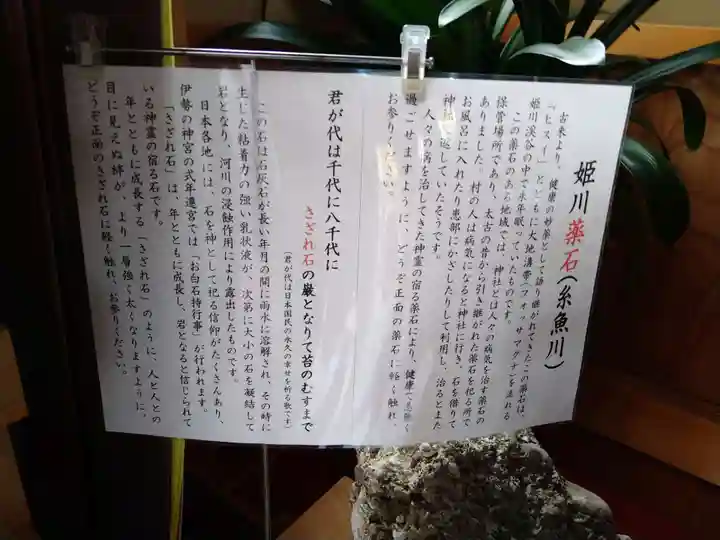 姫川薬石(糸魚川)
古来より、健康の妙薬として語り継がれてきたこの薬石は、
『ヒスイ』とともに大地溝帯(フォッサマグナ)を流れる
姫川渓谷の中で永年眠っていたものです。
この薬石のある地域では、神社とは人々の病気を治す薬石の
保管場所であり、太古の昔から引き継がれた薬石を祀る所で
ありました。村の人は病気になると神社に行き、石を借りて
お風呂に入れたり患部にかざしたりして利用し、治るとまた
神社に返していたそうです。
人々の病を治してきた神霊の宿る薬石により、健康で息災く
過ごせますように、どうぞ正面の薬石に軽く触れ、
お参りください。
君が代は千代に八千代に
さざれ石の巌となりて苔のむすまで
(君が代は日本国民の永久の幸せを祈る歌です)
この石は石灰石が長い年月の間に雨水に溶解され、その時に
生した粘着力の強い乳状液が、次第に大小の石を凝結して
岩となり、河川の浸蝕作用により露出したものです。
日本各地には、石を神として祀る信仰がたくさんあり、
伊勢の神宮の式年遷宮では「お白石持行事」が行われます。
「さざれ石」は、年とともに成長し、岩となると信じられて
いる神霊の宿る石です。
年とともに成長する「さざれ石」のように、人と人との
目に見えぬ絆が、より一層強く太くなりますように、
どうぞ正面のさざれ石に軽く触れ、お参りください。